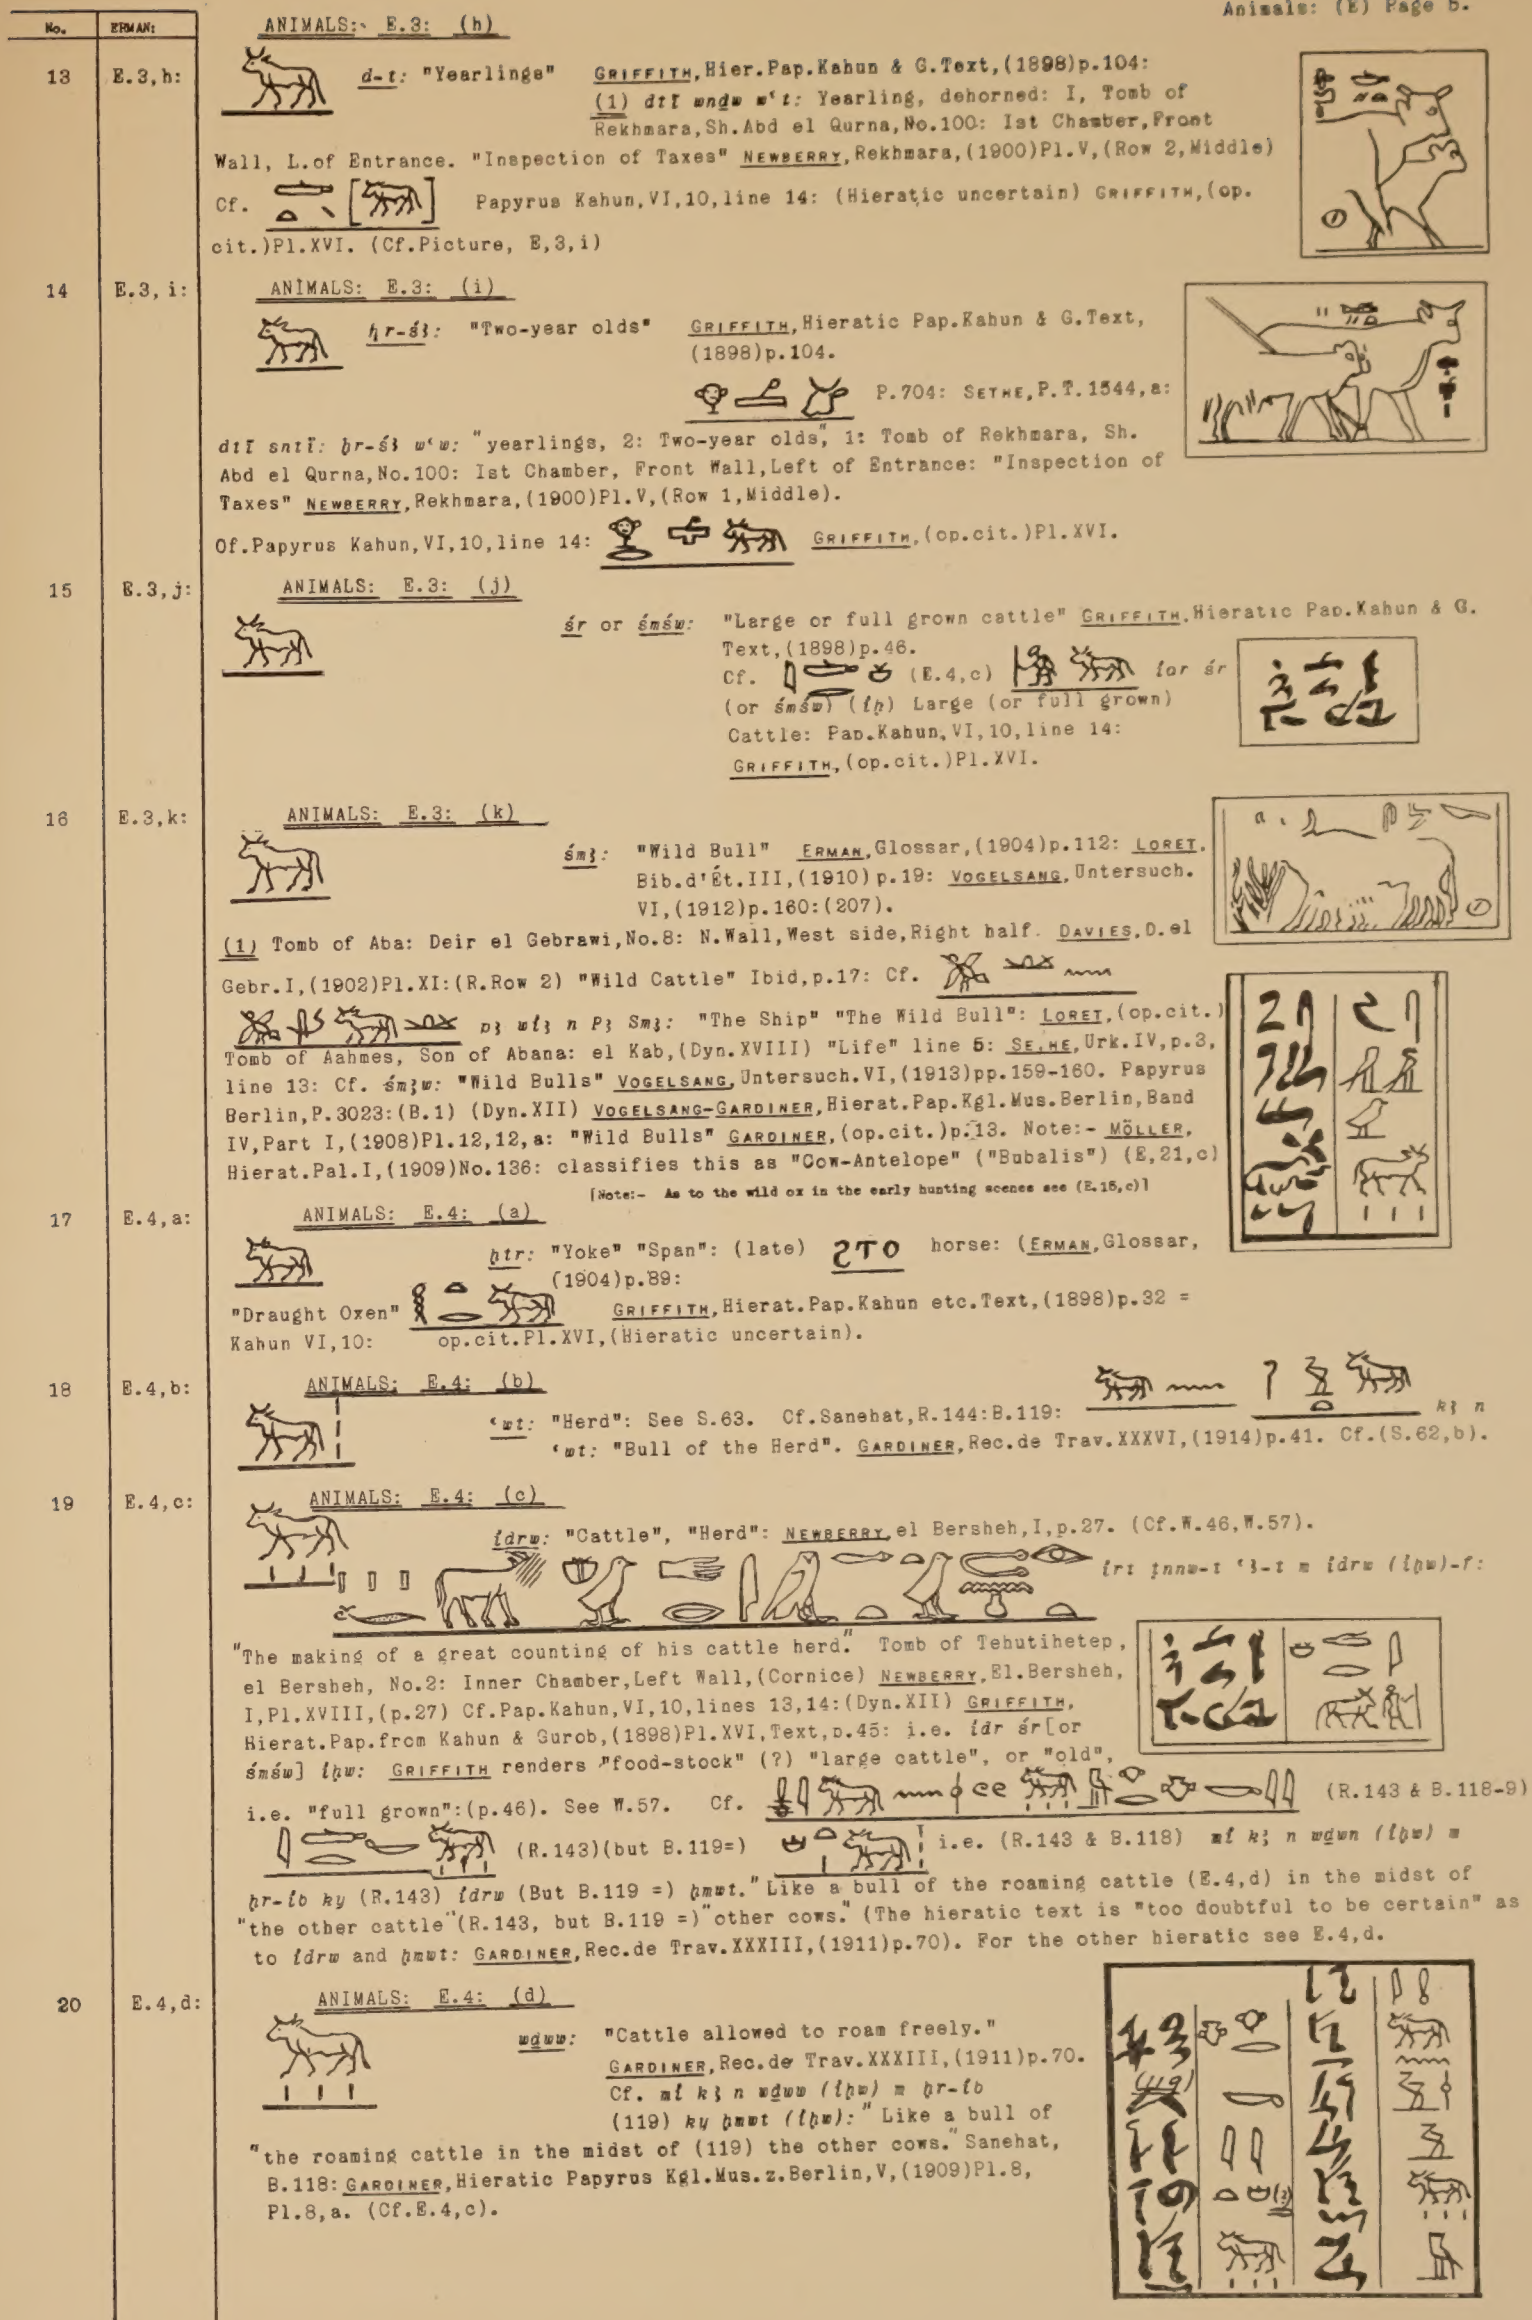 Animals: (E) Page 5.
No. ERMAN:
ANIMALS: E.3: (h)
13 E.3,h: d-t: "Yearlings" GRIFFITH,Hier.Pap.Kahun & G.Text,(1898)p.104:
(1) dtï wnḏw wʿt: Yearling, dehorned: I, Tomb of
Rekhmara,Sh.Abd el Qurna,No.100: Ist Chamber,Front
Wall, L.of Entrance. "Inspection of Taxes" NEWBERRY,Rekhmara,(1900)Pl.V,(Row 2,Middle)
Cf. Papyrus Kahun,VI,10,line 14: (Hieratic uncertain) GRIFFITH,(op.
cit.)Pl.XVI. (Cf.Picture, E,3,i)
ANIMALS: E.3: (i)
14 E.3,i: ḥr-śꜣ: "Two-year olds" GRIFFITH,Hieratic Pap.Kahun & G.Text,
(1898)p.104.
P.704: SETHE,P.T.1544,a:
dtï sntï: ḥr-śꜣ wʿw: "yearlings, 2: Two-year olds", 1: Tomb of Rekhmara, Sh.
Abd el Qurna,No.100: Ist Chamber, Front Wall,Left of Entrance: "Inspection of
Taxes" NEWBERRY,Rekhmara,(1900)Pl.V,(Row 1,Middle).
Of.Papyrus Kahun,VI,10,line 14: GRIFFITH,(op.cit.)Pl.XVI.
15 E.3,j: ANIMALS: E.3: (j)
śr or śmśw: "Large or full grown cattle" GRIFFITH,Hieratic Pap.Kahun & G.
Text,(1898)p.46.
Cf. (E.4,c) śr
(or śmśw) (iḥ) Large (or full grown)
Cattle: Pap.Kahun,VI,10,line 14:
GRIFFITH,(op.cit.)Pl.XVI.
16 E.3,k: ANIMALS: E.3: (k)
śmꜣ: "Wild Bull" ERMAN,Glossar,(1904)p.112: LORET,
Bib.d'Ét.III,(1910)p.19: VOGELSANG,Untersuch.
VI,(1912)p.160:(207).
(1) Tomb of Aba: Deir el Gebrawi,No.8: N.Wall,West side,Right half. DAVIES,D.el
Gebr.I,(1902)Pl.XI:(R.Row 2) "Wild Cattle" Ibid,p.17: Cf.
pꜣ wiꜣ n Pꜣ Smꜣ: "The Ship" "The Wild Bull": LORET,(op.cit.)
Tomb of Aahmes, Son of Abana: el Kab,(Dyn.XVIII) "Life" line 5: SETHE,Urk.IV,p.3,
line 13: Cf. śmꜣw: "Wild Bulls" VOGELSANG,Untersuch.VI,(1913)pp.159-160. Papyrus
Berlin,P.3023:(B.1) (Dyn.XII) VOGELSANG-GARDINER,Hierat.Pap.Kgl.Mus.Berlin,Band
IV,Part I,(1908)Pl.12,12,a: "Wild Bulls" GARDINER,(op.cit.)p.13. Note:- MÖLLER,
Hierat.Pal.I,(1909)No.136: classifies this as "Cow-Antelope" ("Bubalis") (E,21,c)
[Note:- As to the wild ox in the early hunting scenes see (E.15,c)]
17 E.4,a: ANIMALS: E.4: (a)
ḥtr: "Yoke" "Span": (late) horse: (ERMAN,Glossar,
(1904)p.89:
"Draught Oxen" GRIFFITH,Hierat.Pap.Kahun etc.Text,(1898)p.32 =
Kahun VI,10: op.cit.Pl.XVI,(Hieratic uncertain).
18 E.4,b: ANIMALS: E.4: (b)
ʿwt: "Herd": See S.63. Cf.Sanehat,R.144:B.119: kꜣ n
ʿwt: "Bull of the Herd". GARDINER,Rec.de Trav.XXXVI,(1914)p.41. Cf.(S.62,b).
19 E.4,c: ANIMALS: E.4: (c)
idrw: "Cattle", "Herd": NEWBERRY,el Bersheh,I,p.27. (Cf.W.46,W.57).
irt ṯnnw-t ʿꜣ-t m idrw (iḥw)-f:
"The making of a great counting of his cattle herd." Tomb of Tehutihetep,
el Bersheh, No.2: Inner Chamber,Left Wall,(Cornice) NEWBERRY,El.Bersheh,
I,Pl.XVIII,(p.27) Cf.Pap.Kahun,VI,10,lines 13,14:(Dyn.XII) GRIFFITH,
Hierat.Pap.from Kahun & Gurob,(1898)Pl.XVI,Text,p.45: i.e. idr śr[or
śmśw] iḥw: GRIFFITH renders "food-stock" (?) "large cattle", or "old",
i.e. "full grown":(p.46). See W.57. Cf. (R.143 & B.118-9)
(R.143)(but B.119=) i.e. (R.143 & B.118) mi kꜣ n wḏwn (iḥw) m
ḥr-ib ky (R.143) idrw (But B.119 =) ḥmwt. "Like a bull of the roaming cattle (E.4,d) in the midst of
"the other cattle"(R.143, but B.119 =)"other cows." (The hieratic text is "too doubtful to be certain" as
to idrw and ḥmwt: GARDINER,Rec.de Trav.XXXIII,(1911)p.70). For the other hieratic see E.4,d.
20 E.4,d: ANIMALS: E.4: (d)
wḏww: "Cattle allowed to roam freely."
GARDINER,Rec.de Trav.XXXIII,(1911)p.70.
Cf. mi kꜣ n wḏww (iḥw) m ḥr-ib
(119) ky ḥmwt (iḥw): "Like a bull of
"the roaming cattle in the midst of (119) the other cows." Sanehat,
B.118: GARDINER,Hieratic Papyrus Kgl.Mus.z.Berlin,V,(1909)Pl.8,
Pl.8,a. (Cf.E.4,c).
(119)